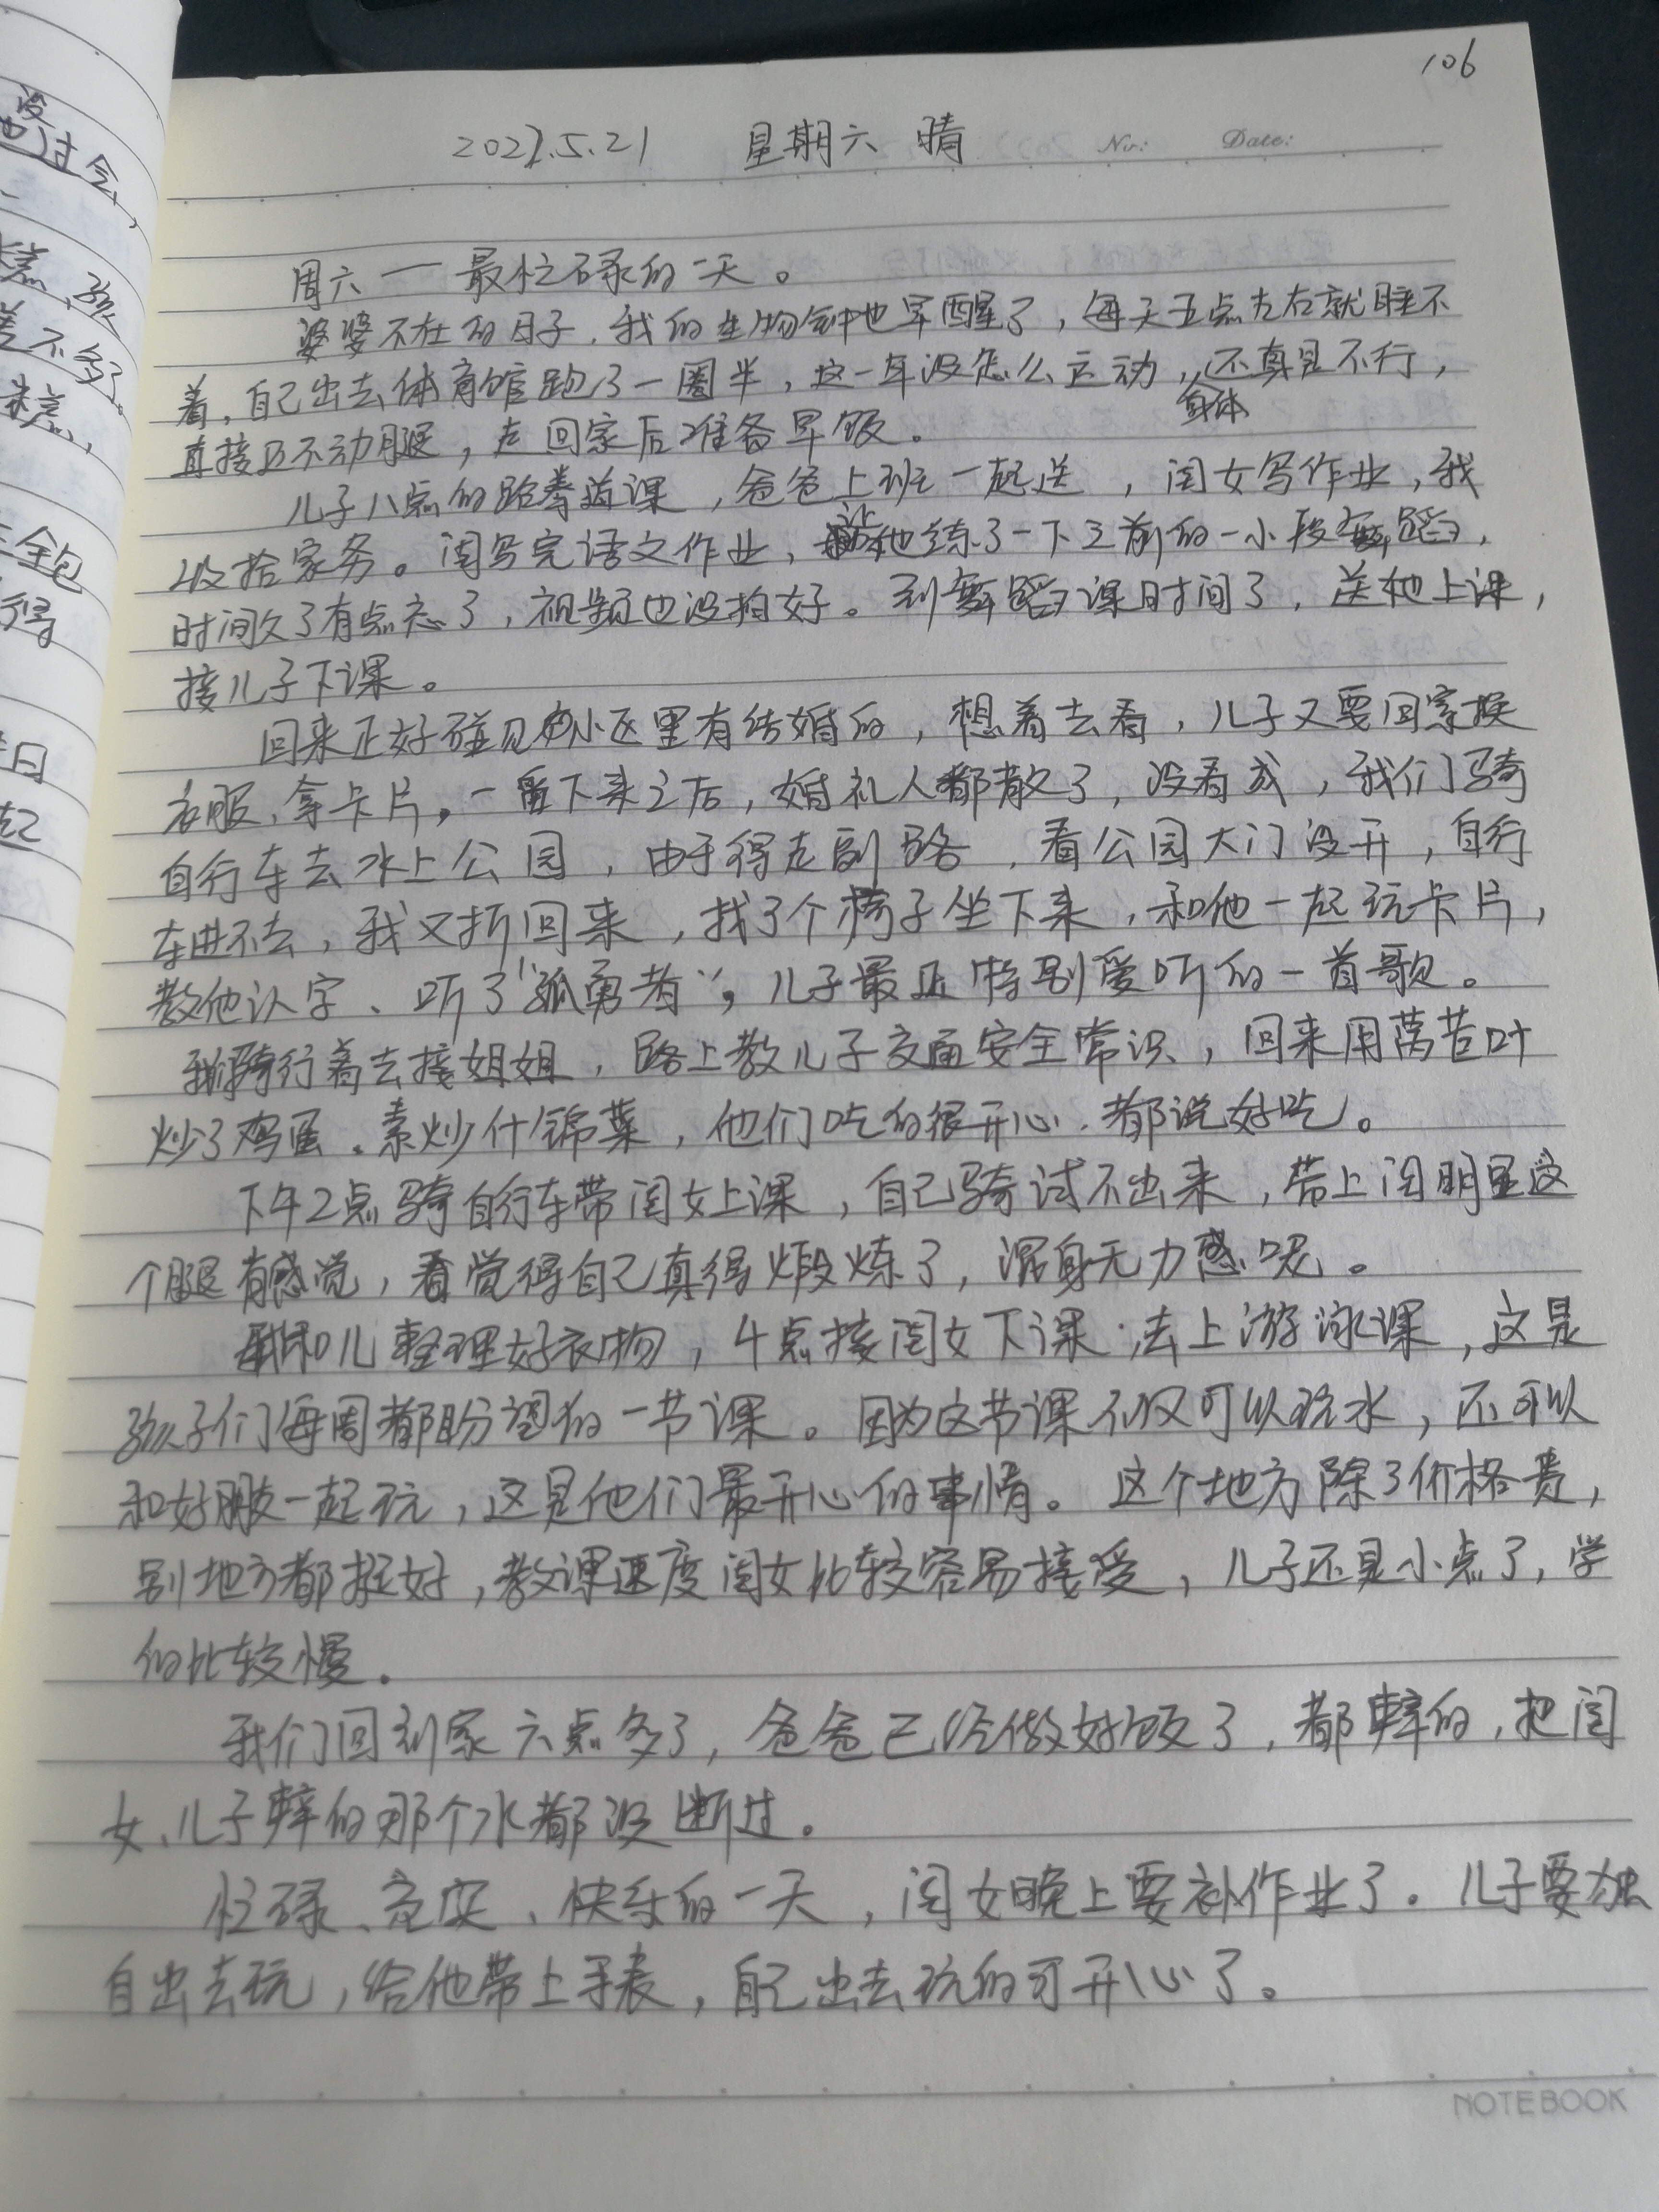 106
2022.5.21 星期六 晴 No: Date:
周六一最忙碌的一天。
婆婆不在的日子,我的生物钟也早醒了,每天五点左右就睡不
着,自己出去体育馆跑了一圈半,这一年没怎么运动,身体还真是不行,
直接迈不动腿,走回家后准备早饭。
儿子八点的跆拳道课,爸爸上班一起送,闺女写作业,我
收拾家务。闺写完语文作业,让她练了一下之前的一小段舞蹈,
时间久了有点忘了,视频也没拍好。到舞蹈课时间了,送她上课,
接儿子下课。
回来正好碰见小区里有结婚的,想着去看,儿子又要回家换
衣服、拿卡片,一番下来之后,婚礼人都散了,没看成,我们骑
自行车去水上公园,由于得走副路,看公园大门没开,自行
车进不去,我又折回来,找了个椅子坐下来,和他一起玩卡片,
教他认字、听了"孤勇者",儿子最近特别爱听的一首歌。
我们骑行着去接姐姐,路上教儿子交通安全常识,回来用莴苣叶
炒了鸡蛋、素炒什锦菜,他们吃的很开心,都说好吃。
下午2点骑自行车带闺女上课,自己骑试不出来,带上闺明显这
个腿有感觉,看觉得自己真得煅炼了,浑身无力感呢。
我和儿整理好衣物,4点接闺女下课,去上游泳课,这是
孩子们每周都盼望的一节课。因为这节课不仅可以玩水,还可以
和好朋友一起玩,这是他们最开心的事情。这个地方除了价格贵,
别地方都挺好,教课速度闺女比较容易接受,儿子还是小点了,学
的比较慢。
我们回到家六点多了,爸爸已经做好饭了,都辣的,把闺
女、儿子辣的那个水都没断过。
忙碌、充实、快乐的一天,闺女晚上要补作业了。儿子要独
自出去玩,给他带上手表,自己出去玩的可开心了。
NOTEBOOK